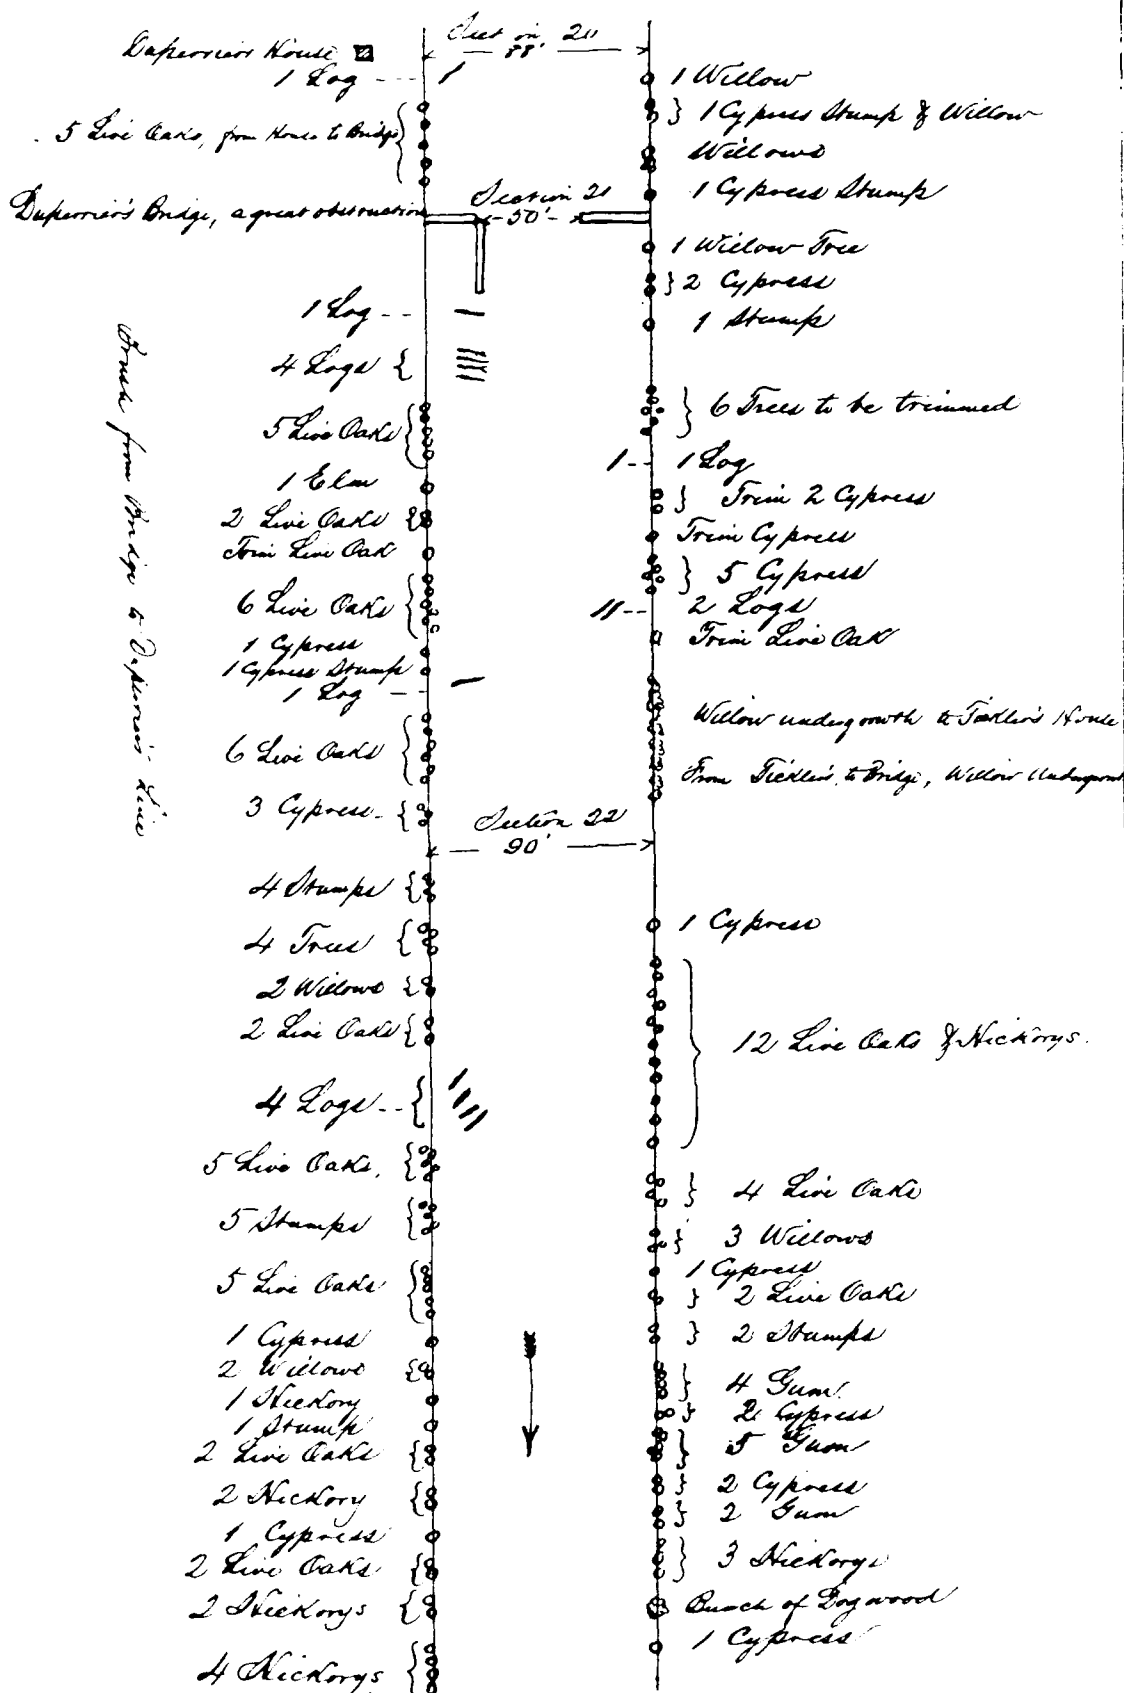 Section 20
88'
Duperrier's House
1 Log
5 Live Oaks, from House to Bridge
Duperrier's Bridge, a great obstruction
Section 21
50'
1 Log
4 Logs
5 Live Oaks
1 Elm
2 Live Oaks
Trim Live Oak
6 Live Oaks
1 Cypress
1 Cypress Stump
1 Log
6 Live Oaks
3 Cypress
Brush from Bridge to Duperrier's Line
Section 22
90'
4 Stumps
4 Trees
2 Willows
2 Live Oaks
4 Logs
5 Live Oaks.
5 Stumps
5 Live Oaks
1 Cypress
2 Willows
1 Hickory
1 Stump
2 Live Oaks
2 Hickory
1 Cypress
2 Live Oaks
2 Hickorys
4 Hickorys
1 Willow
1 Cypress Stump & Willow
Willows
1 Cypress Stump
1 Willow Tree
2 Cypress
1 Stump
6 Trees to be trimmed
1 Log
Trim 2 Cypress
Trim Cypress
5 Cypress
2 Logs
Trim Live Oak
Willow undergrowth to House
From to Bridge, Willow
1 Cypress
12 Live Oaks & Hickorys.
4 Live Oaks
3 Willows
1 Cypress
2 Live Oaks
2 Stumps
4 Gum
2 Cypress
5 Gum
2 Cypress
2 Gum
3 Hickorys
Bunch of Dogwood
1 Cypress